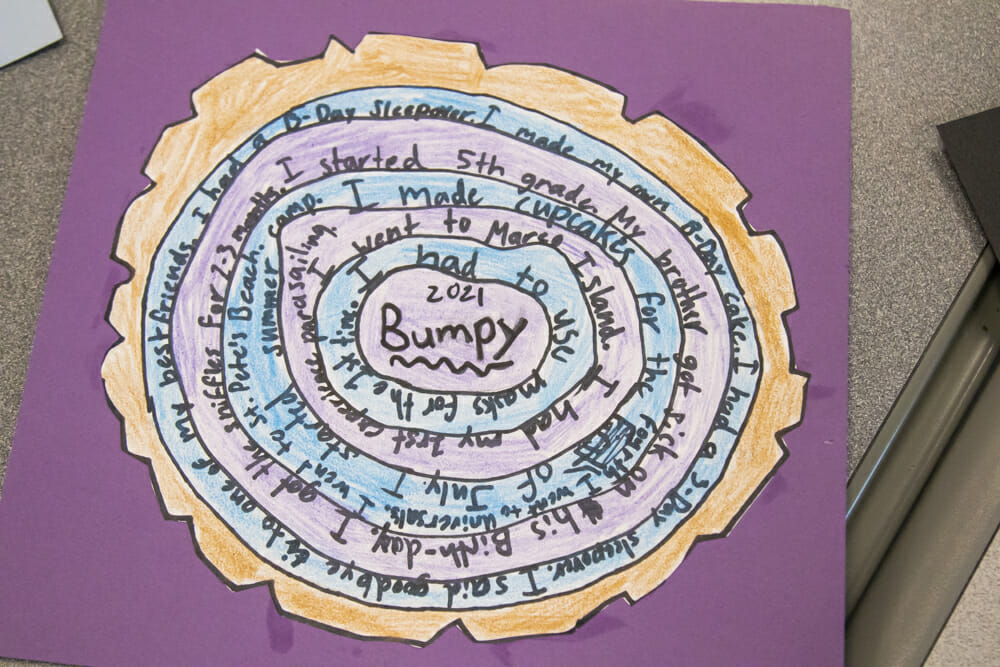 2021
Bumpy
I had to use masks for the 1st time.
I went to Marco Island. I had my 1st experience parasailing.
I made cupcakes for the Fourth of July. I started summer camp.
I went to Universals. I went to St. Petes Beach.
I started 5th grade. My brother got sick on his Birth-day. I got the sniffles for 2-3 months.
I had a B-Day sleepover. I made my own B-Day cake. I had a 3-Day sleepover. I said goodbye to one of my best friends.